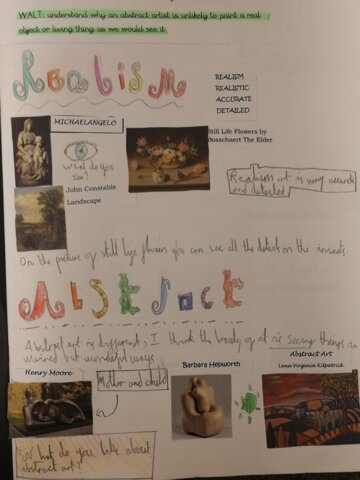 WALT: understand why an abstract artist is unlikely to paint a real
object or living thing as we would see it
Realism
REALISM
REALISTIC
ACCURATE
DETAILED
MICHAELANGELO
Still Life Flowers by
Bosschaert The Elder
What do you
see?
Realism art is very accurate
and detailed
John Constable
Landscape
On the picture of still life flowers you can see all the details on the insects.
Abstract
Abstract art is different, I think the beauty of it is seeing things in
weird but wonderful ways
Abstract Art
Henry Moore
Mother and child
Barbara Hepworth
Lena Virginia Kilpatrick
What do you like about
abstract art?